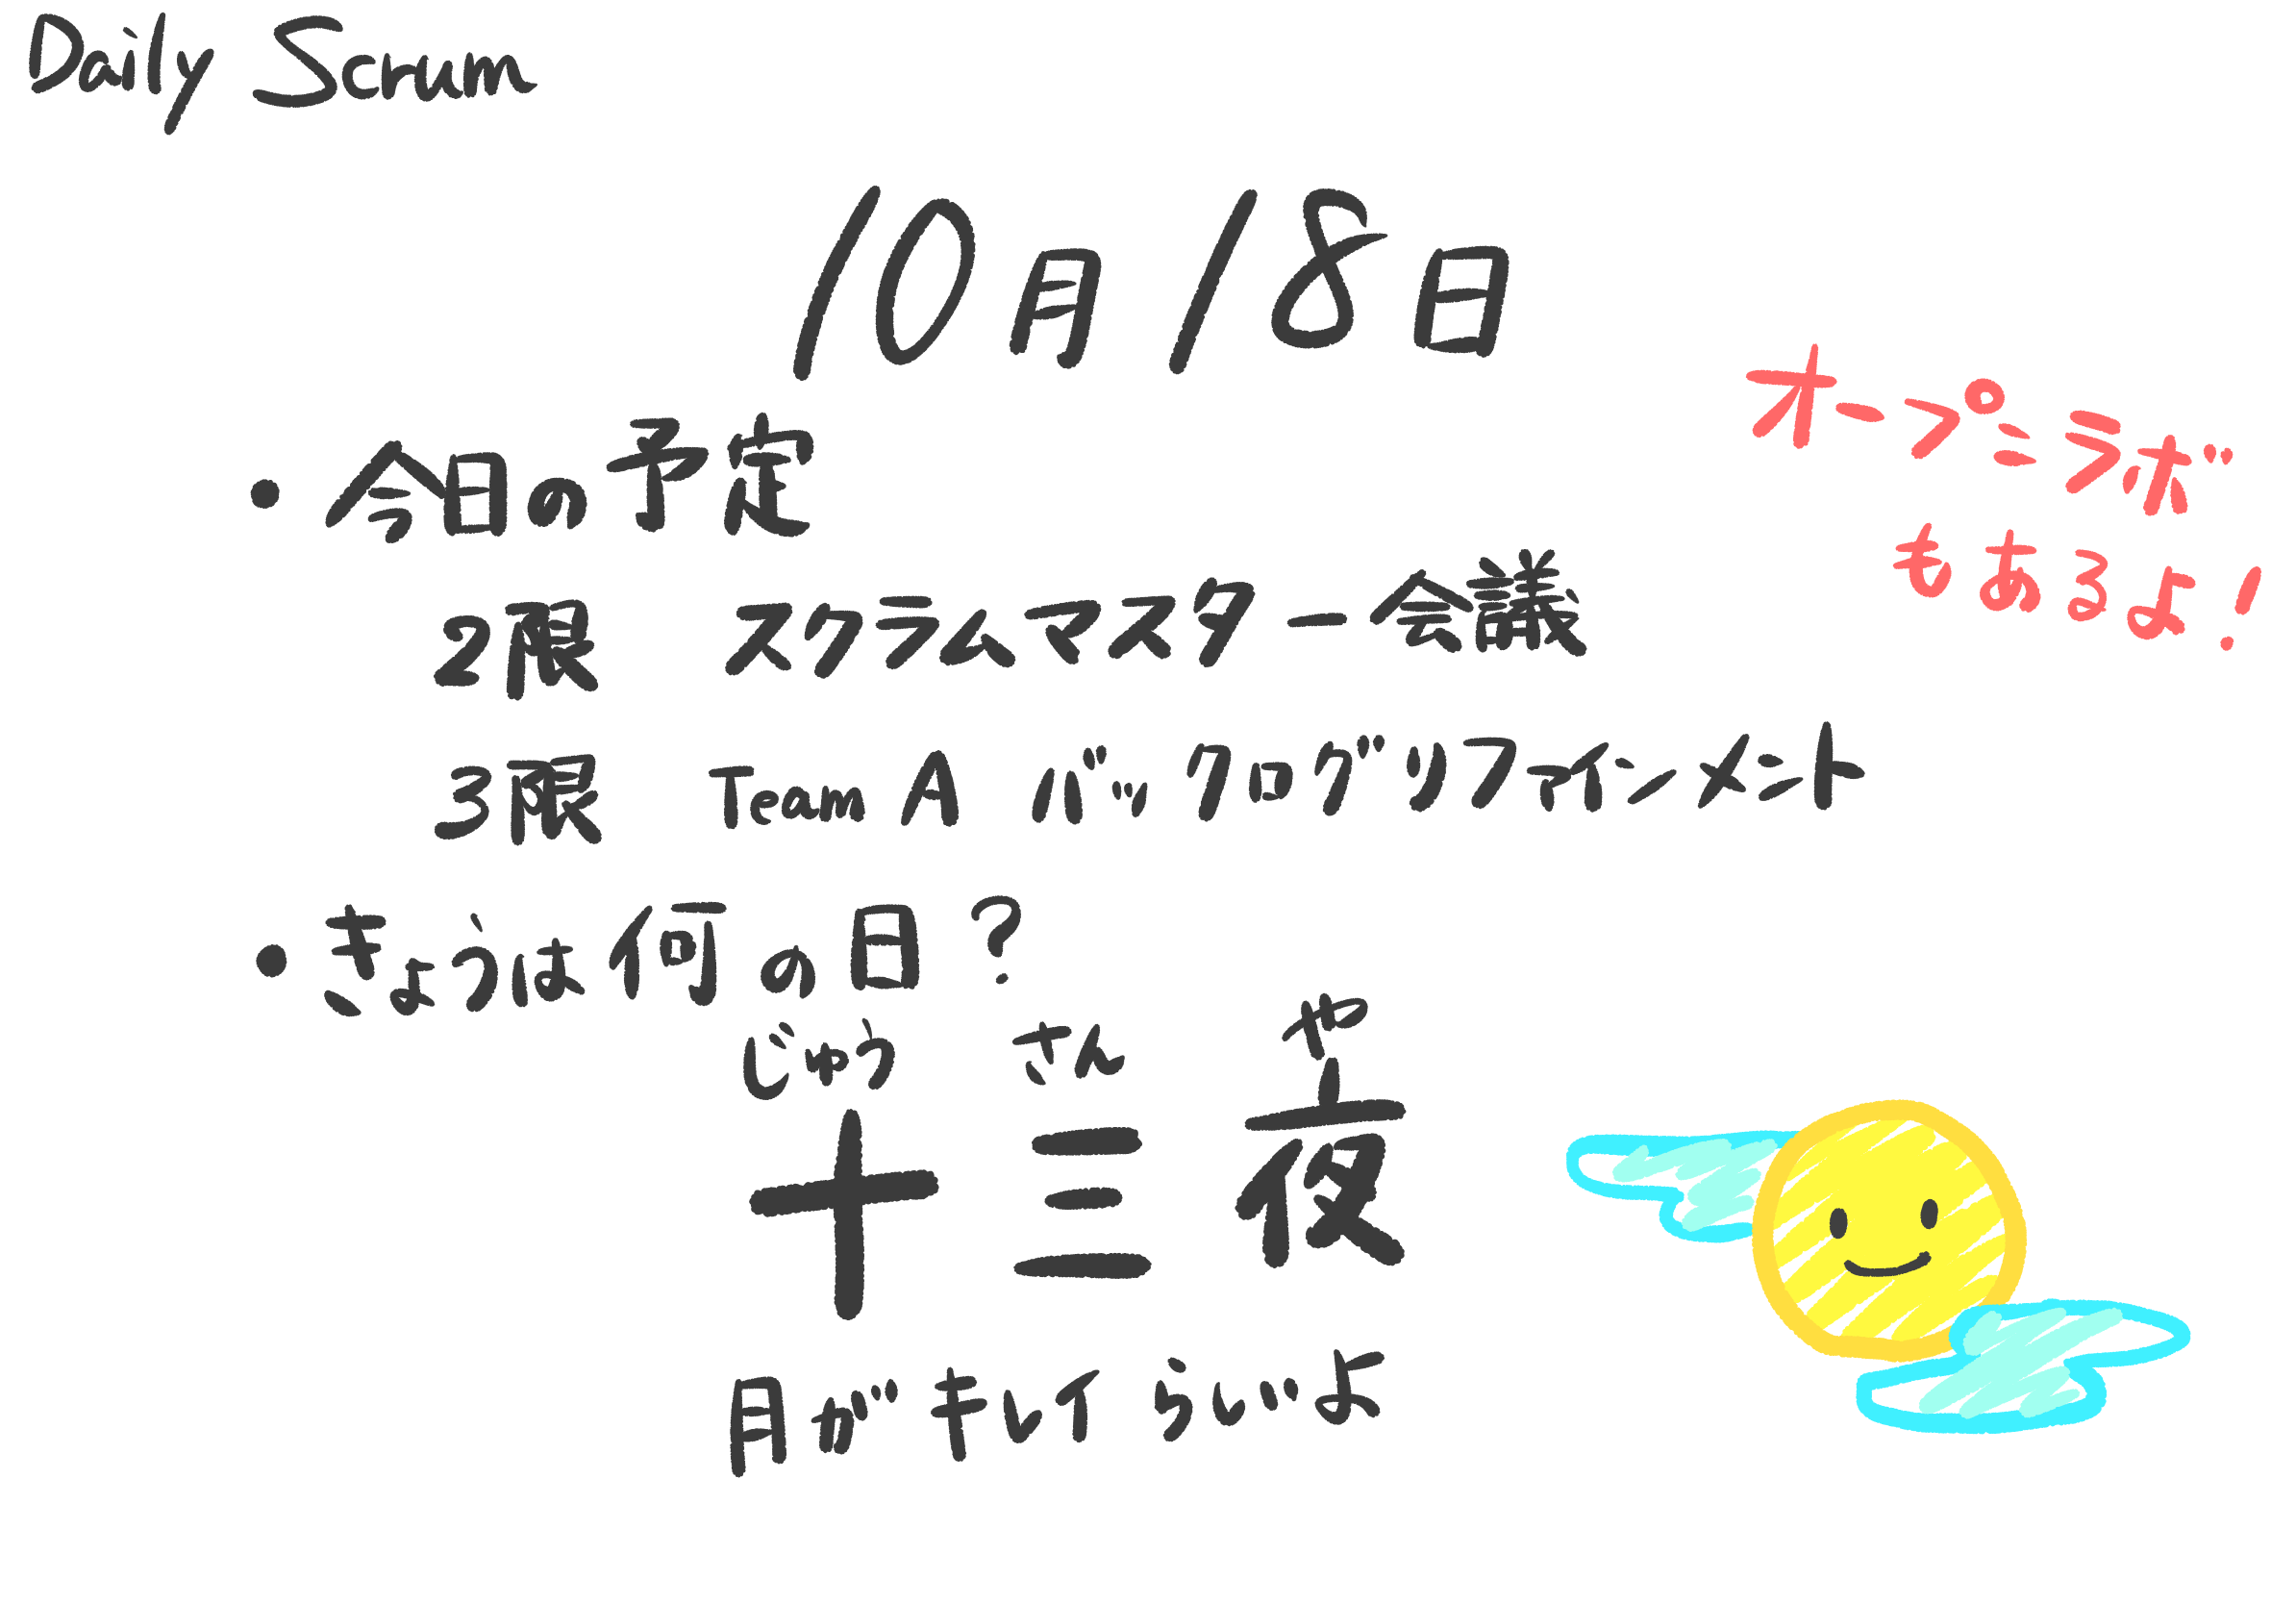 Daily Scrum
10月18日
オープンラボ
もあるよ!
・今日の予定
2限 スクラムマスター会議
3限 Team A バックログリファインメント
・きょうは何の日?
じゅう さん や
十三夜
月がキレイらしいよ